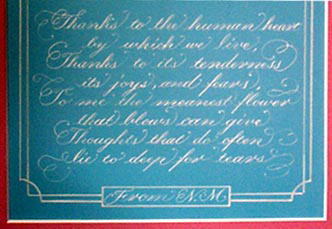 Thanks to the human heart
by which we live,
Thanks to its tenderness
its joys, and fears,
To me the meanest flower
that blows can give
Thoughts that do often
lie to deep for tears
From N.M